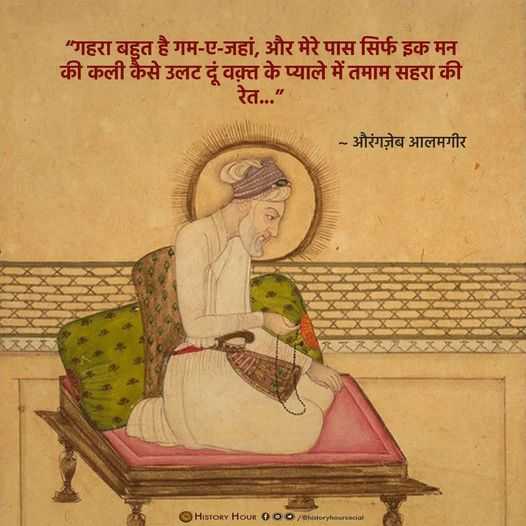 “गहरा बहुत है गम-ए-जहां, और मेरे पास सिर्फ इक मन
की कली कैसे उलट दूं वक़्त के प्याले में तमाम सहरा की
रेत...”
~ औरंगज़ेब आलमगीर
HISTORY HOUR /@historyhoursocial